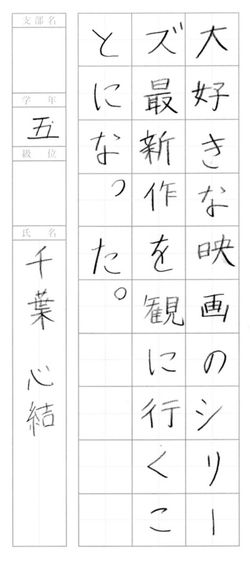 大好きな映画のシリー
ズ最新作を観に行くこ
とになった。
支部名
学年
五
級位
氏名
千葉 心結